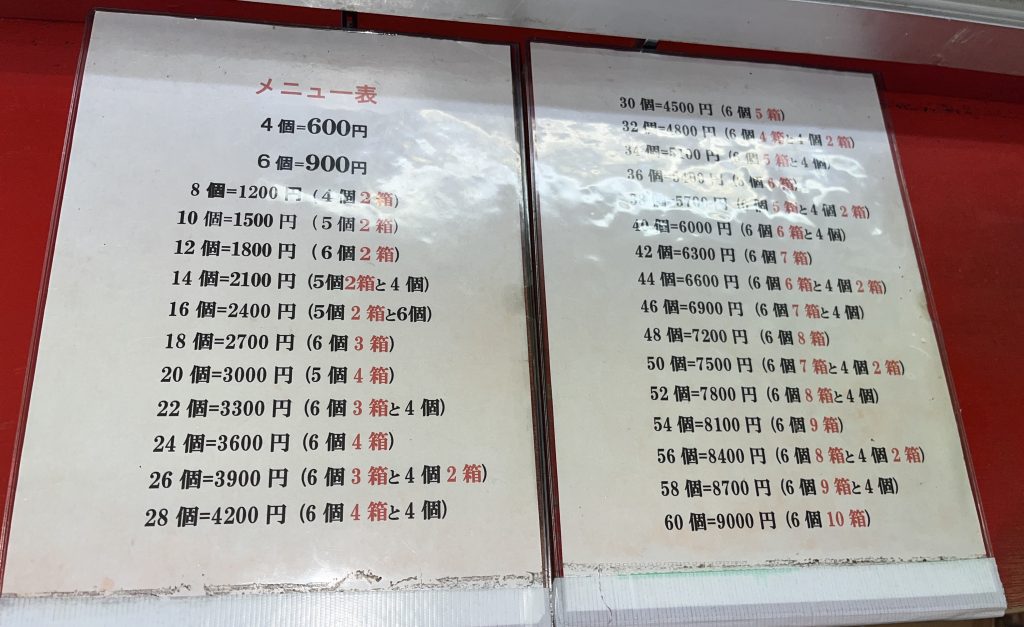 メニュー表
4個=600円
6個=900円
8個=1200円(4個2箱)
10個=1500円(5個2箱)
12個=1800円(6個2箱)
14個=2100円(5個2箱と4個)
16個=2400円(5個2箱と6個)
18個=2700円(6個3箱)
20個=3000円(5個4箱)
22個=3300円(6個3箱と4個)
24個=3600円(6個4箱)
26個=3900円(6個3箱と4個2箱)
28個=4200円(6個4箱と4個)
30個=4500円(6個5箱)
32個=4800円(6個4箱と4個2箱)
34個=5100円(6個5箱と4個)
36個=5400円(6個6箱)
38個=5700円(6個5箱と4個2箱)
40個=6000円(6個6箱と4個)
42個=6300円(6個7箱)
44個=6600円(6個6箱と4個2箱)
46個=6900円(6個7箱と4個)
48個=7200円(6個8箱)
50個=7500円(6個7箱と4個2箱)
52個=7800円(6個8箱と4個)
54個=8100円(6個9箱)
56個=8400円(6個8箱と4個2箱)
58個=8700円(6個9箱と4個)
60個=9000円(6個10箱)